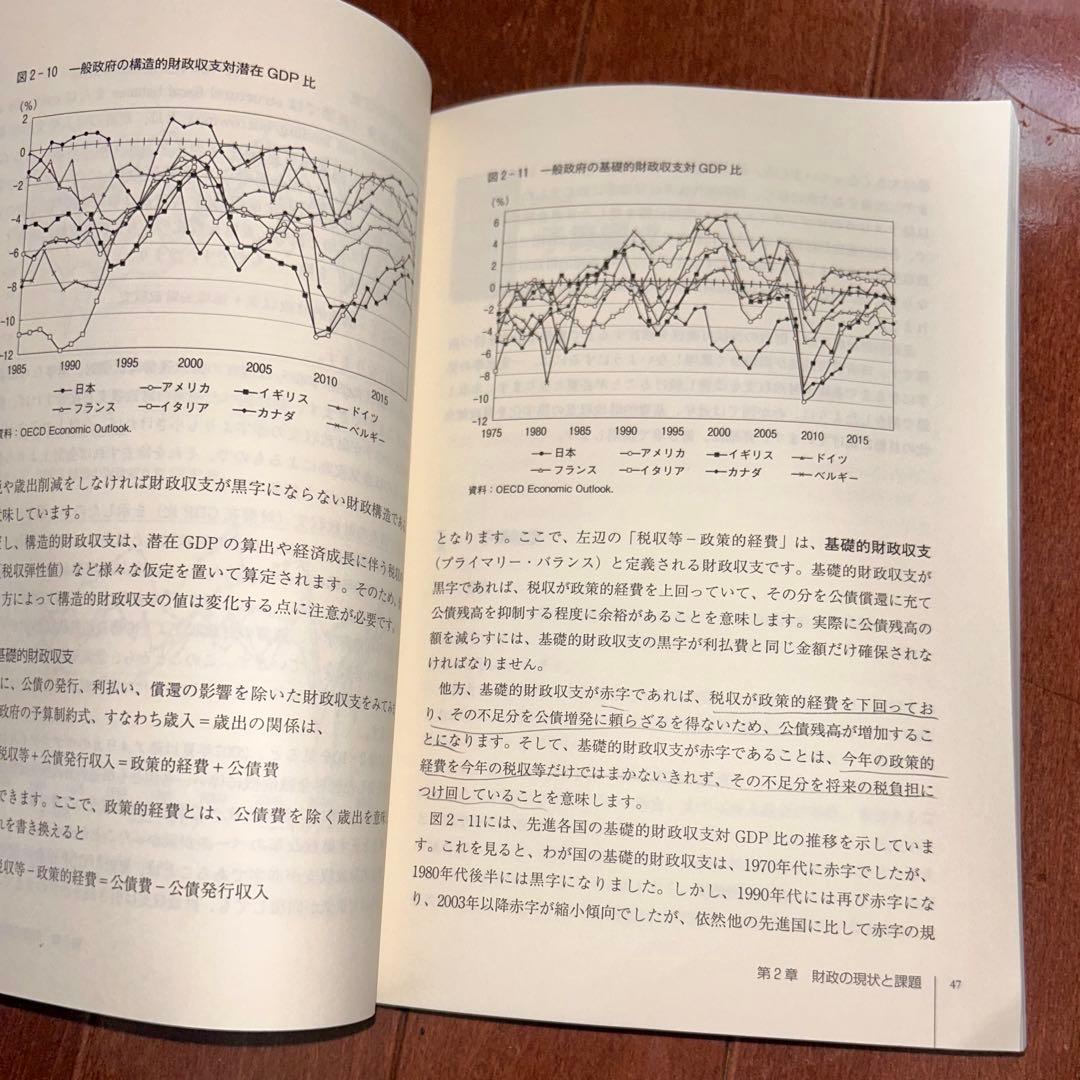 図2-10 一般政府の構造的財政収支対潜在 GDP 比
(%)
2
0
-2
-4
-6
-8
-10
-12
1985 1990 1995 2000 2005 2010 2015
日本 アメリカ イギリス ドイツ
フランス イタリア カナダ ベルギー
資料：OECD Economic Outlook.
や歳出削減をしなければ財政収支が黒字にならない財政構造であ
味しています。
し、構造的財政収支は、潜在GDPの算出や経済成長に伴う税収
（税収弾性値）など様々な仮定を置いて算定されます。そのため、
方によって構造的財政収支の値は変化する点に注意が必要です。
基礎的財政収支
に、公債の発行、利払い、償還の影響を除いた財政収支をみてみ
政府の予算制約式、すなわち歳入＝歳出の関係は、
税収等＋公債発行収入＝政策的経費＋公債費
できます。ここで、政策的経費とは、公債費を除く歳出を意味
れを書き換えると
税収等－政策的経費＝公債費－公債発行収入
図2-11 一般政府の基礎的財政収支対 GDP 比
(%)
6
4
2
0
-2
-4
-6
-8
-10
-12
1975 1980 1985 1990 1995 2000 2005 2010 2015
日本 アメリカ イギリス ドイツ
フランス イタリア カナダ ベルギー
資料：OECD Economic Outlook.
となります。ここで、左辺の「税収等－政策的経費」は、基礎的財政収支
（プライマリー・バランス）と定義される財政収支です。基礎的財政収支が
黒字であれば、税収が政策的経費を上回っていて、その分を公債償還に充て
公債残高を抑制する程度に余裕があることを意味します。実際に公債残高の
額を減らすには、基礎的財政収支の黒字が利払費と同じ金額だけ確保されな
ければなりません。
他方、基礎的財政収支が赤字であれば、税収が政策的経費を下回ってお
り、その不足分を公債増発に頼らざるを得ないため、公債残高が増加するこ
とになります。そして、基礎的財政収支が赤字であることは、今年の政策的
経費を今年の税収等だけではまかないきれず、その不足分を将来の税負担に
つけ回していることを意味します。
図2-11には、先進各国の基礎的財政収支対 GDP 比の推移を示していま
す。これを見ると、わが国の基礎的財政収支は、1970年代に赤字でしたが、
1980年代後半には黒字になりました。しかし、1990年代には再び赤字にな
り、2003年以降赤字が縮小傾向でしたが、依然他の先進国に比して赤字の規
第2章 財政の現状と課題 47